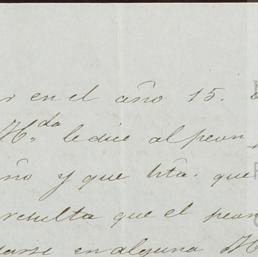 r en el año 15.
Hda le dice al peon
ño y que hta. que
resulta que el peon
darse en alguna H